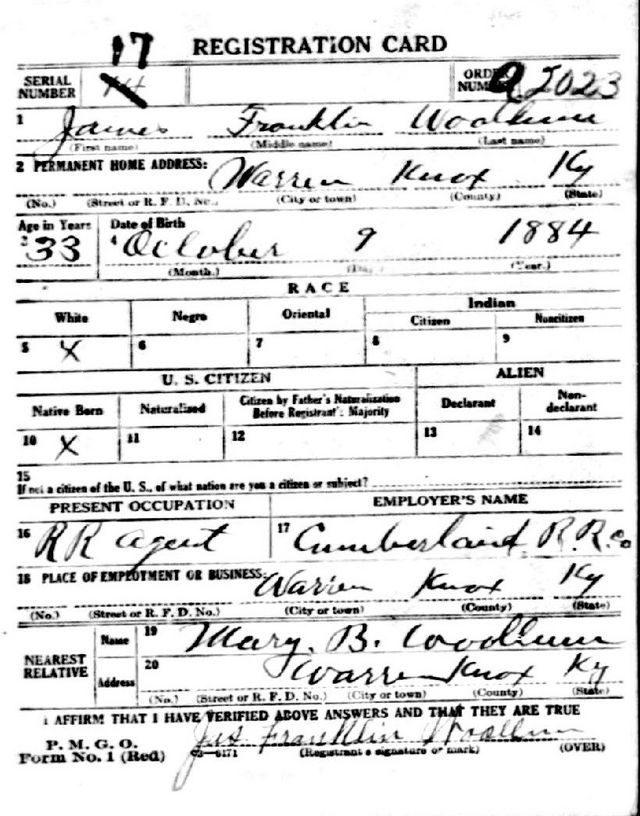 17 REGISTRATION CARD
SERIAL NUMBER ORDER NUMBER A2023
1 James Franklin Woollum
(First name) (Middle name) (Last name)
2 PERMANENT HOME ADDRESS: Warren Knox Ky
(No.) (Street or R. F. D. No.) (City or town) (County) (State)
Age in Years Date of Birth
3 33 4 October 9 1884
(Month.) (Day.) (Year.)
RACE
White Negro Oriental Indian
Citizen Noncitizen
5 X 6 7 8 9
U. S. CITIZEN ALIEN
Native Born Naturalized Citizen by Father's Naturalization Before Registrant's Majority Declarant Non-declarant
10 X 11 12 13 14
15
If not a citizen of the U. S., of what nation are you a citizen or subject?
PRESENT OCCUPATION EMPLOYER'S NAME
16 RR agent 17 Cumberland R.R. Co
18 PLACE OF EMPLOYMENT OR BUSINESS: Warren Knox Ky
(No.) (Street or R. F. D. No.) (City or town) (County) (State)
NEAREST RELATIVE Name 19 Mary. B. Woollum
Address 20 Warren Knox Ky
(No.) (Street or R. F. D. No.) (City or town) (County) (State)
I AFFIRM THAT I HAVE VERIFIED ABOVE ANSWERS AND THAT THEY ARE TRUE
P. M. G. O.
Form No. 1 (Red) Jas Franklin Woollum
(Registrant's signature or mark) (OVER)